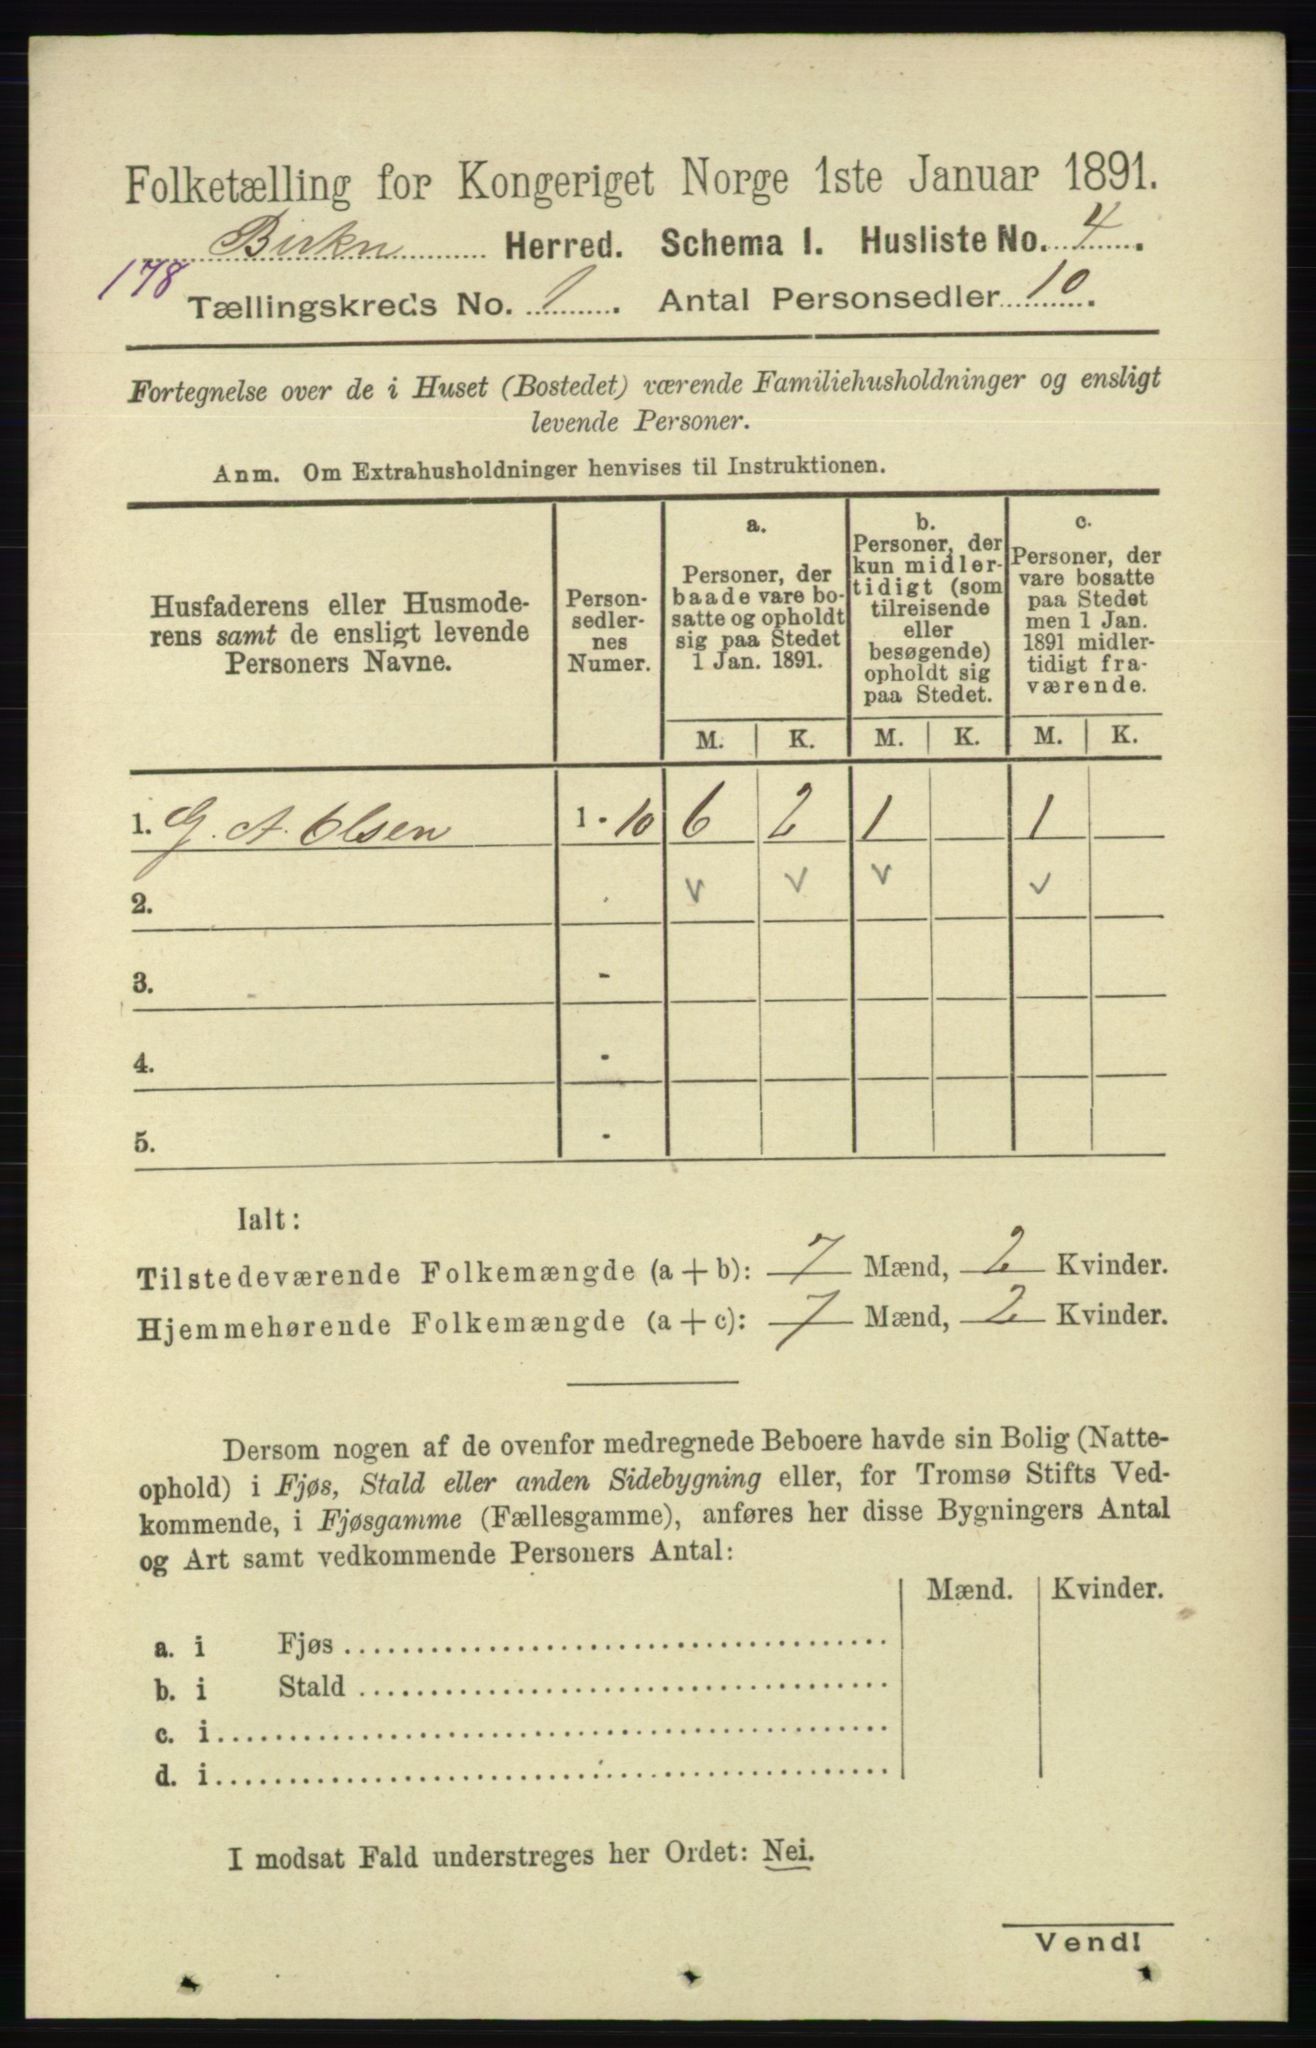 Folketælling for Kongeriget Norge 1ste Januar 1891.
Birkn Herred. Schema I. Husliste No. 4.
178
Tællingskreds No. 1. Antal Personsedler 10.
Fortegnelse over de i Huset (Bostedet) værende Familiehusholdninger og ensligt
levende Personer.
Anm. Om Extrahusholdninger henvises til Instruktionen.
Husfaderens eller Husmode-
rens samt de ensligt levende
Personers Navne.
Person-
sedler-
nes
Numer.
a.
Personer, der
baade vare bo-
satte og opholdt
sig paa Stedet
1 Jan. 1891.
b.
Personer, der
kun midler-
tidigt (som
tilreisende
eller
besøgende)
opholdt sig
paa Stedet.
c.
Personer, der
vare bosatte
paa Stedet
men 1 Jan.
1891 midler-
tidigt fra-
værende.
M. K. M. K. M. K.
1. G. A. Olsen 1 - 10 6 2 1 1
2. v v v v
3. -
4. -
5. -
Ialt:
Tilstedeværende Folkemængde (a + b): 7 Mænd, 2 Kvinder.
Hjemmehørende Folkemængde (a + c): 7 Mænd, 2 Kvinder.
Dersom nogen af de ovenfor medregnede Beboere havde sin Bolig (Natte-
ophold) i Fjøs, Stald eller anden Sidebygning eller, for Tromsø Stifts Ved-
kommende, i Fjøsgamme (Fællesgamme), anføres her disse Bygningers Antal
og Art samt vedkommende Personers Antal:
Mænd. Kvinder.
a. i Fjøs
b. i Stald
c. i
d. i
I modsat Fald understreges her Ordet: Nei.
Vend!